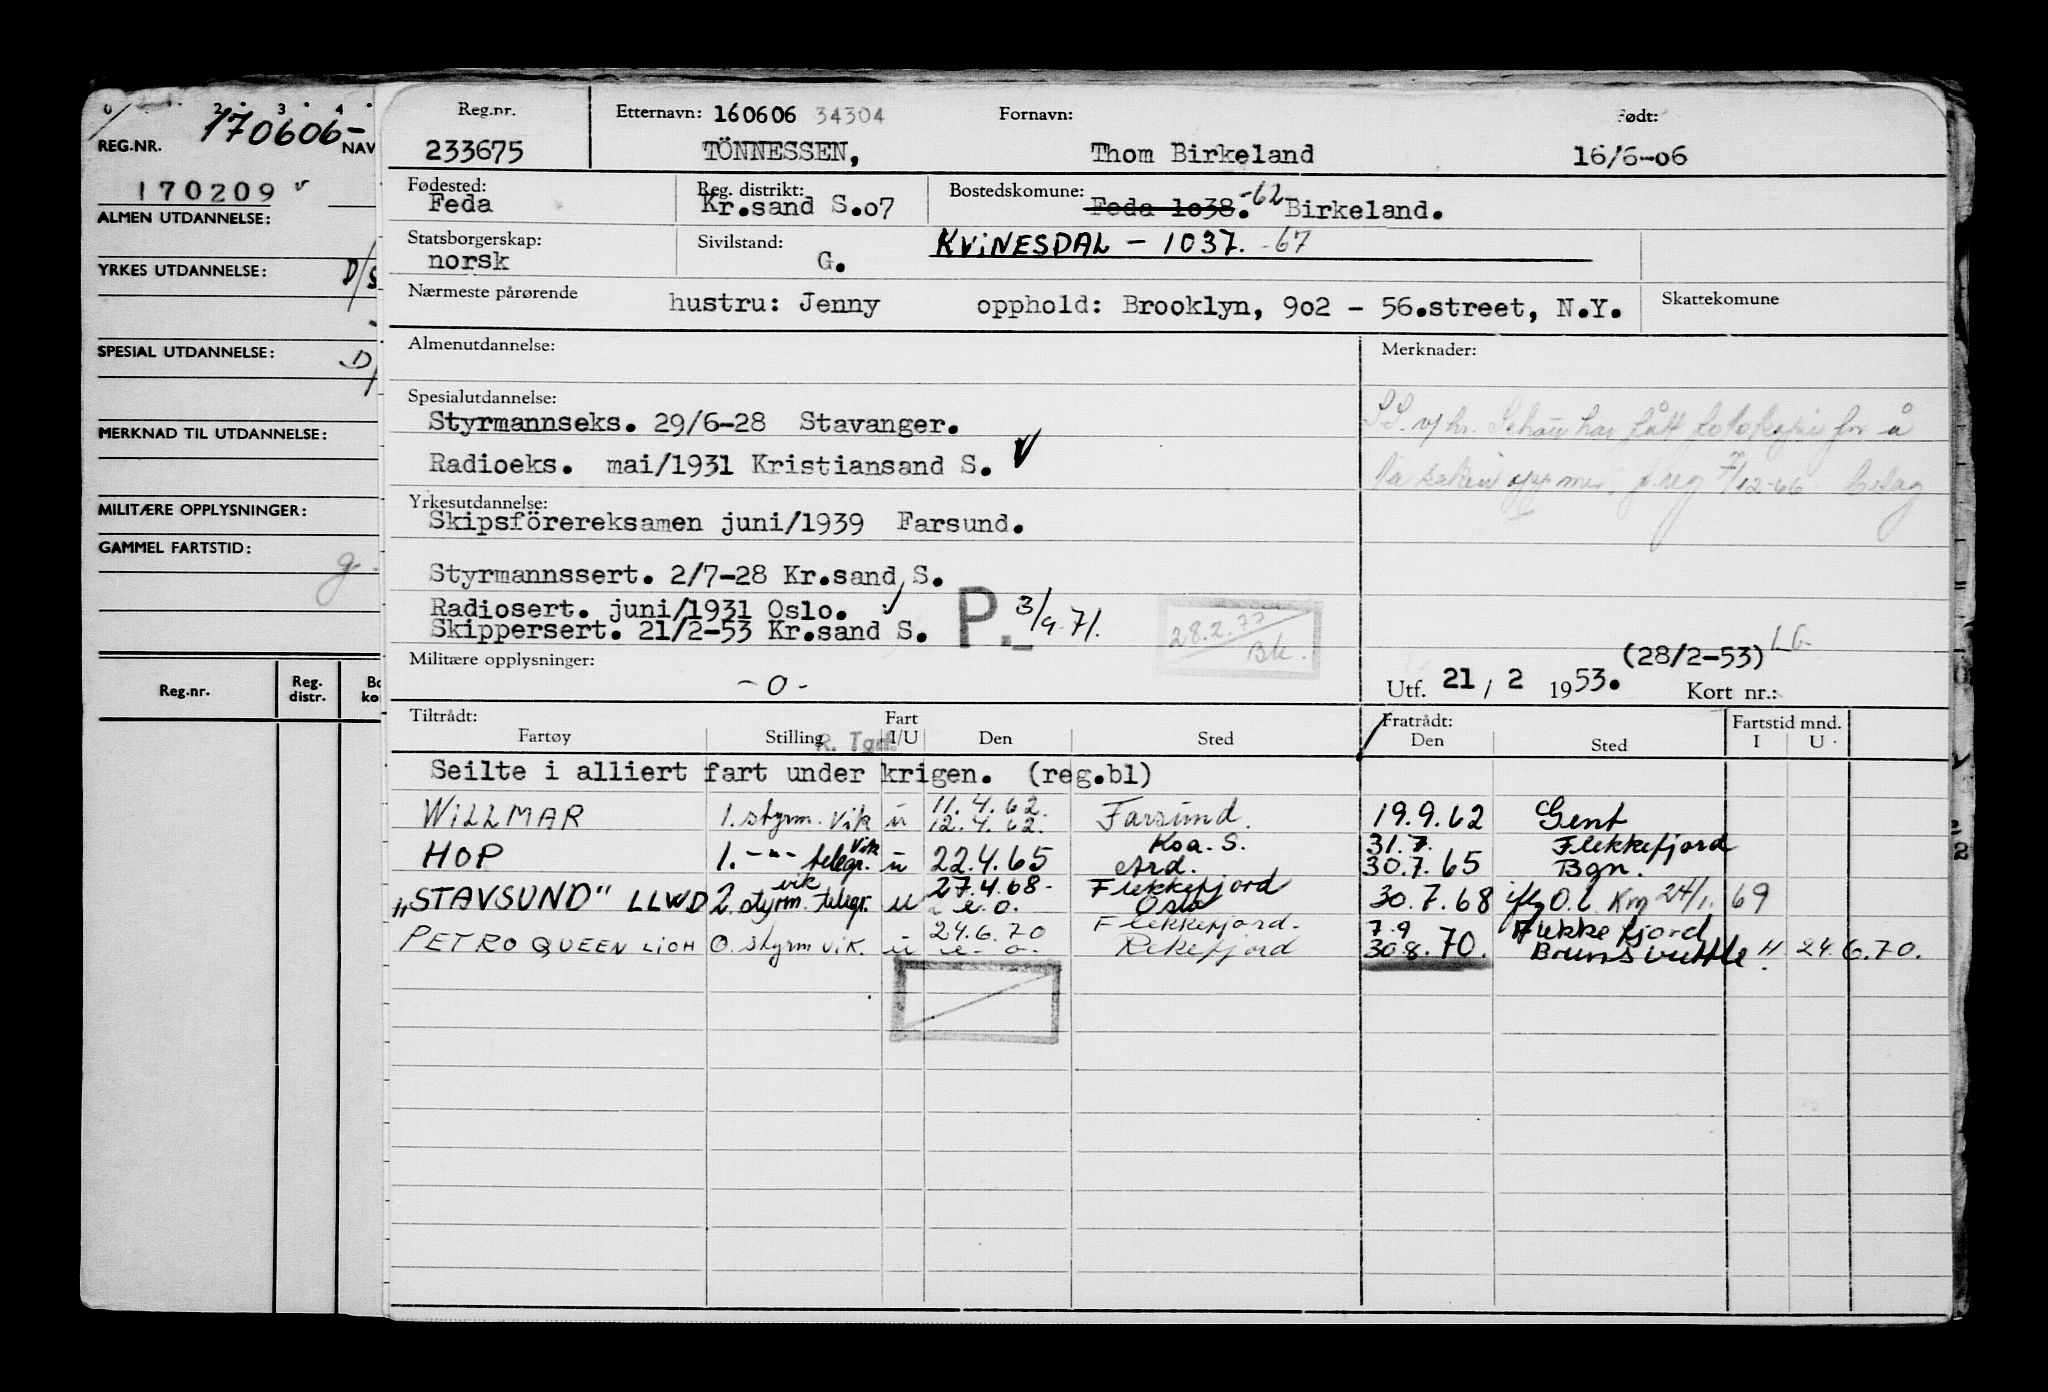 2 3 4
170606-
REG.NR. NAV
170209
ALMEN UTDANNELSE:
YRKES UTDANNELSE: D/S
SPESIAL UTDANNELSE: D/
MERKNAD TIL UTDANNELSE:
MILITÆRE OPPLYSNINGER:
GAMMEL FARTSTID:
g.
Reg.nr. Reg. distr. Bo ko
Reg.nr. Etternavn: 160606 34304 Fornavn: Født:
233675 TÖNNESSEN, Thom Birkeland 16/6-06
Fødested: Reg. distrikt: Bostedskomune: -62
Feda Kr.sand S.o7 Feda 1o38. Birkeland.
Statsborgerskap: Sivilstand: KVINESDAL - 1037. -67
norsk G.
Nærmeste pårørende hustru: Jenny opphold: Brooklyn, 9o2 - 56.street, N.Y. Skattekomune
Almenutdannelse: Merknader:
Spesialutdannelse:
Styrmannseks. 29/6-28 Stavanger.
S.S. v/hr. Schøu har fått fotokopi for å
Radioeks. mai/1931 Kristiansand S. V
ta saken opp 7/12-66
Yrkesutdannelse:
Skipsförereksamen juni/1939 Farsund.
Styrmannssert. 2/7-28 Kr.sand S.
Radiosert. juni/1931 Oslo. P. 3/9-71.
Skippersert. 21/2-53 Kr.sand S. 28.2.77 Bk.
(28/2-53) LG
Militære opplysninger: -0-
Utf. 21 / 2 1953. Kort nr.:
Tiltrådt: Fart Fratrådt: Fartstid mnd.
Fartøy Stilling I/U Den Sted Den Sted I U
R. Tgm.
Seilte i alliert fart under krigen. (reg.bl)
11.4.62.
WILLMAR 1. styrm. vik u 12.4.62. Farsund. 19.9.62 Gent
vik Koa. S. 31.7. Flekkefjord
HOP 1. -"- telegr. u 22.4.65 Ard. 30.7.65 Bgn.
vik 27.4.68- Flekkefjord
"STAVSUND" LLWD 2. styrm. telegr. u e.o. Oslo 30.7.68 iflg O.l. Krg 24/1. 69
24.6.70 Flekkefjord. 7.9 Flekkefjord
PETRO QUEEN LIOH O. styrm vik. u e-o- Rekefjord 30.8.70. Brunsbuttle H. 24.6.70.